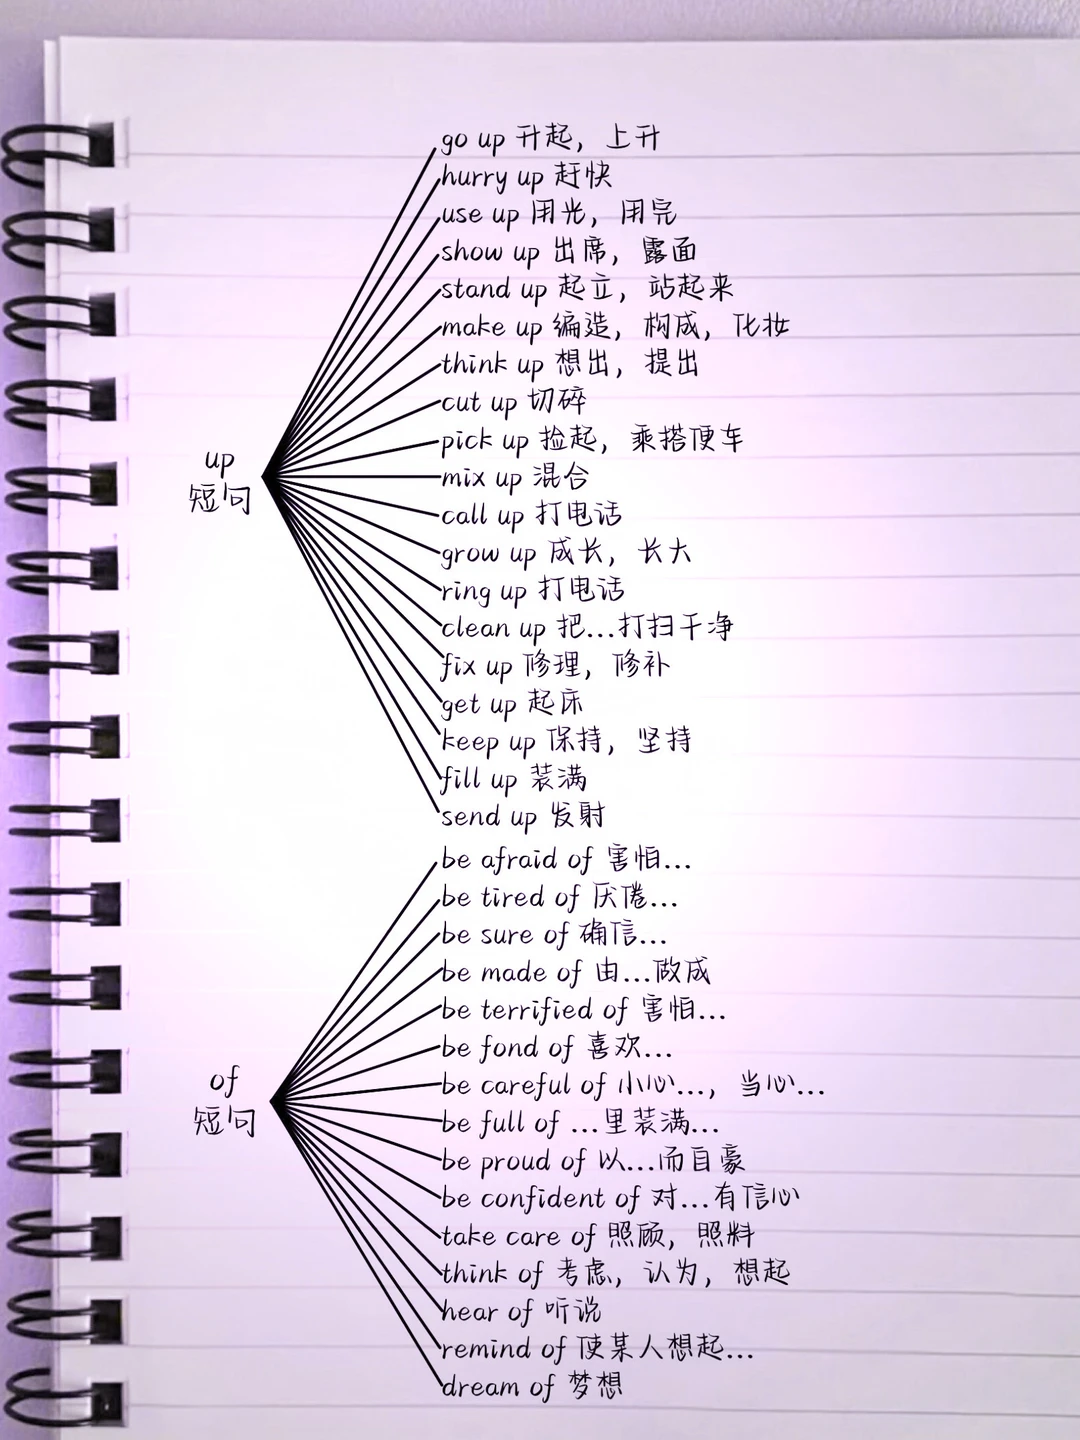 go up 升起，上升
hurry up 赶快
use up 用光，用完
show up 出席，露面
stand up 起立，站起来
make up 编造，构成，化妆
think up 想出，提出
cut up 切碎
pick up 捡起，乘搭便车
up
短句
mix up 混合
call up 打电话
grow up 成长，长大
ring up 打电话
clean up 把...打扫干净
fix up 修理，修补
get up 起床
keep up 保持，坚持
fill up 装满
send up 发射
be afraid of 害怕...
be tired of 厌倦...
be sure of 确信...
be made of 由...做成
be terrified of 害怕...
be fond of 喜欢...
of
短句
be careful of 小心...，当心...
be full of ...里装满...
be proud of 以...而自豪
be confident of 对...有信心
take care of 照顾，照料
think of 考虑，认为，想起
hear of 听说
remind of 使某人想起...
dream of 梦想